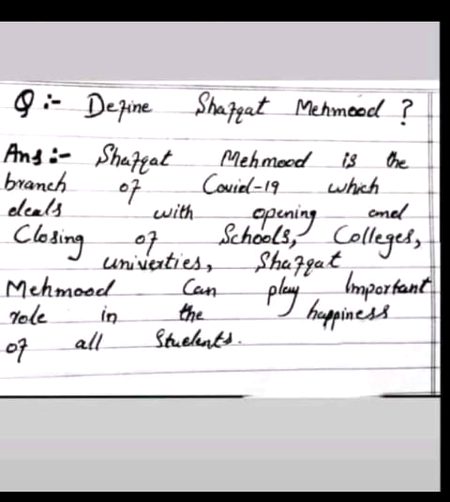 Q :- Define Shafqat Mehmood ?
Ans :- Shafqat Mehmood is the
branch of Covid-19 which
deals with opening and
Closing of Schools, Colleges,
univerties, Shafqat
Mehmood Can play Important
role in the happiness
of all Students.